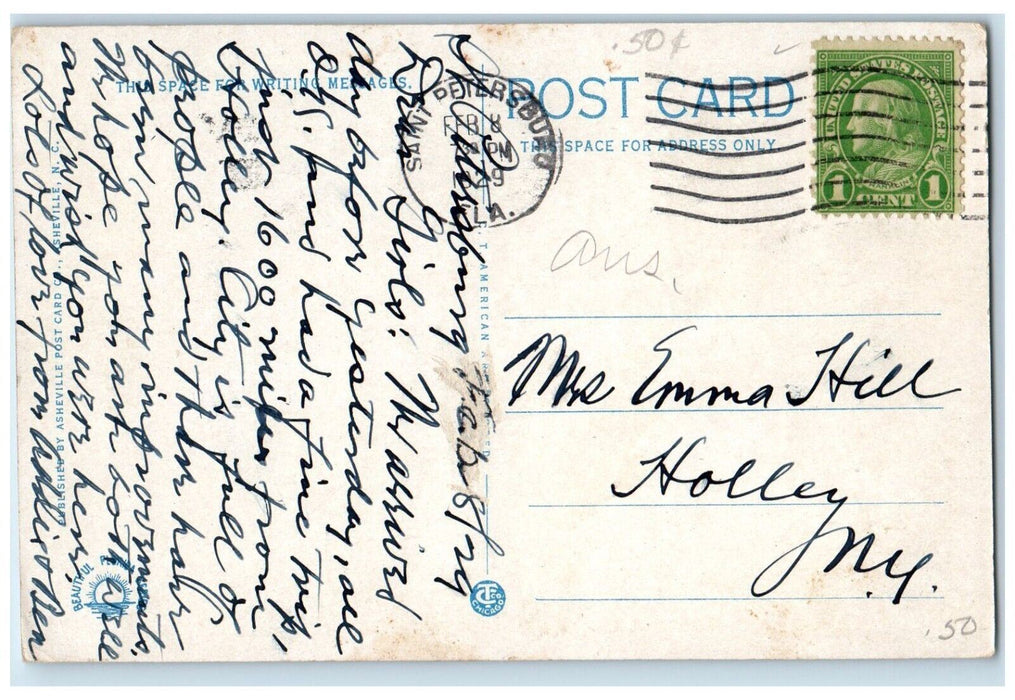 .50¢
THIS SPACE FOR WRITING MESSAGES.
POST CARD
THIS SPACE FOR ADDRESS ONLY
SAINT PETERSBURG
FEB 8
PM
FLA.
UNITED STATES POSTAGE
FRANKLIN
1 CENT 1
St Petersburg Feb 8/29
Dear Girls: We arrived
day befor yesturday, all
O.K. fine, had a fine trip,
Just 1600 miles from
today. City is full of
people and ther have
bin many improvments.
We hope you are both well
and wish you wer here,
Lots of love from Allie & Ben
ans.
Mrs Emma Hill
Holley
N.Y.
.50
PUBLISHED BY ASHEVILLE POST CARD CO., ASHEVILLE, N. C.
C. T. AMERICAN ART
BEAUTIFUL
CT CO
CHICAGO